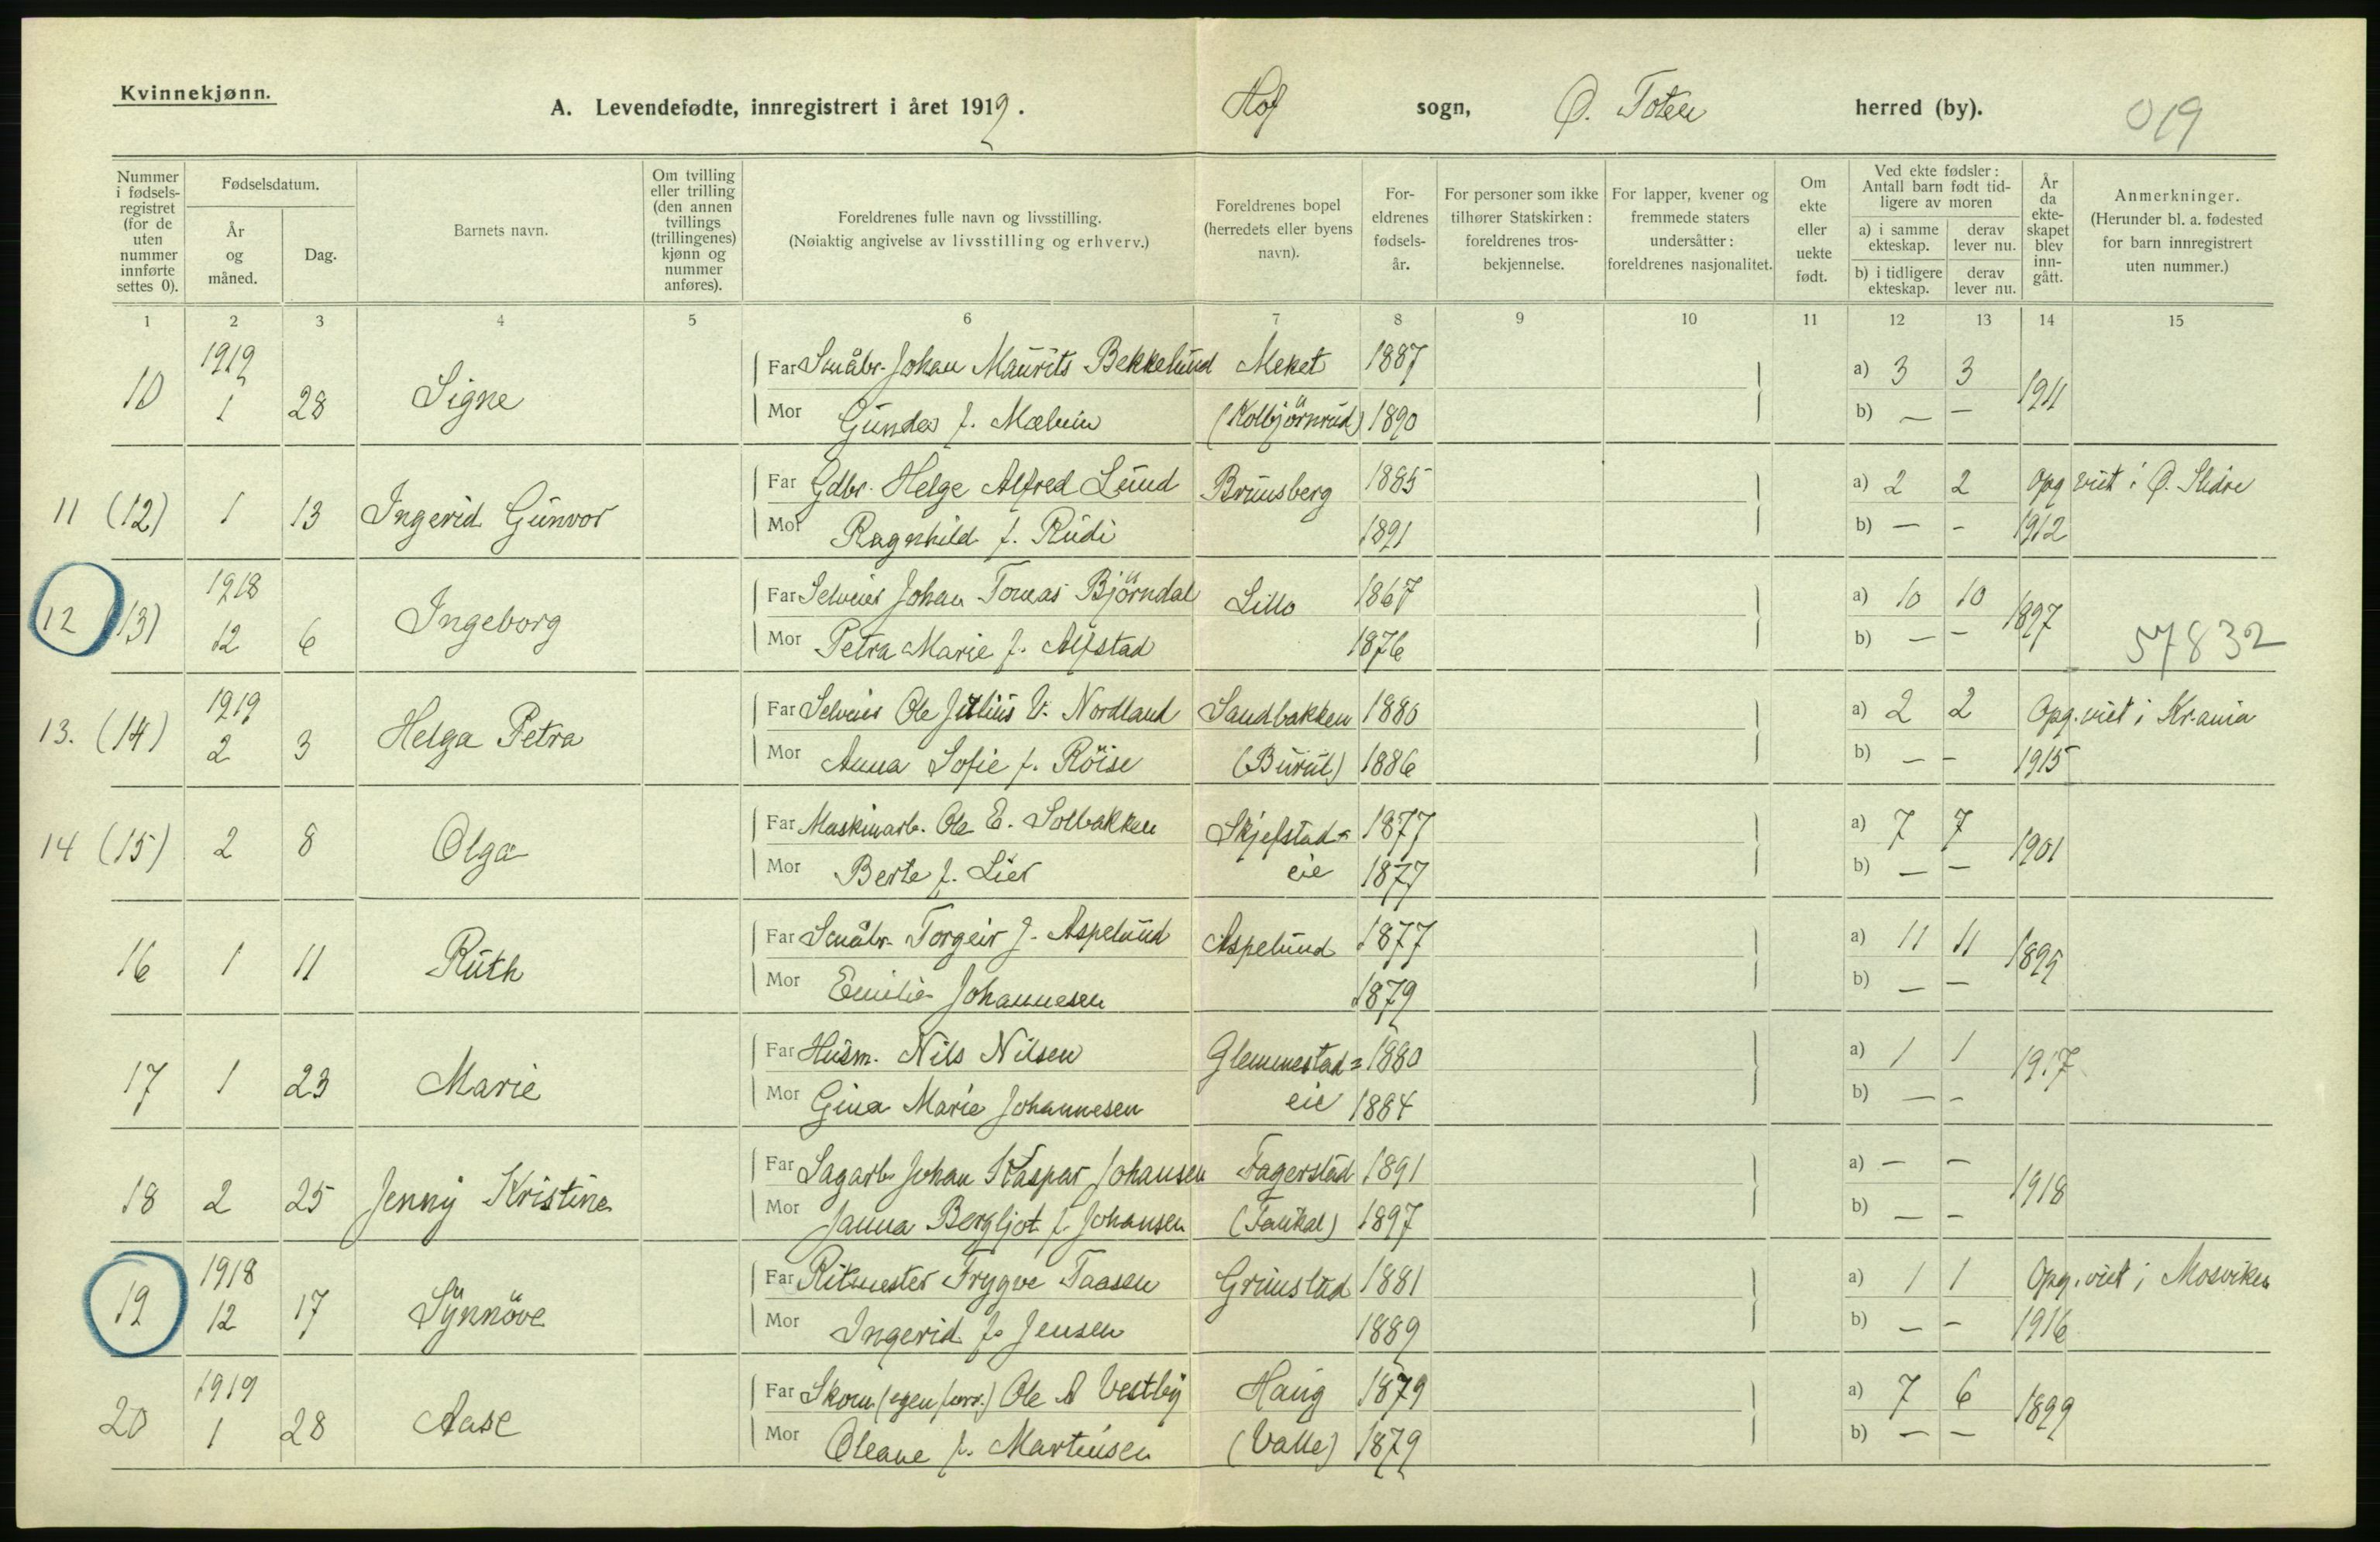 Kvinnekjønn.
A. Levendefødte, innregistrert i året 1919. Hof sogn, Ø. Toten herred (by). 019
Nummer i fødselsregistret (for de uten nummer innførte settes 0).
Fødselsdatum.
År og måned.
Dag.
Barnets navn.
Om tvilling eller trilling (den annen tvillings (trillingenes) kjønn og nummer anføres).
Foreldrenes fulle navn og livsstilling.
(Nøiaktig angivelse av livsstilling og erhverv.)
Foreldrenes bopel (herredets eller byens navn).
Foreldrenes fødselsår.
For personer som ikke tilhører Statskirken: foreldrenes trosbekjennelse.
For lapper, kvener og fremmede staters undersåtter: foreldrenes nasjonalitet.
Om ekte eller uekte født.
Ved ekte fødsler: Antall barn født tidligere av moren
a) i samme ekteskap.
derav lever nu.
b) i tidligere ekteskap.
derav lever nu.
År da ekteskapet blev inngått.
Anmerkninger.
(Herunder bl. a. fødested for barn innregistrert uten nummer.)
1 2 3 4 5 6 7 8 9 10 11 12 13 14 15
1919
10 1 28 Signe
Far Småbr. Johan Maurits Bekkelund Meket 1887 a) 3 3 1911
Mor Gunda f. Mælum (Kolbjörnrud) 1890 b) — —
11 (12) 1 13 Ingerid Gunvor
Far Gdbr. Helge Alfred Lund Brunsberg 1885 a) 2 2 Opg. viet i Ø. Slidre
Mor Ragnhild f. Rudi 1891 b) — - 1912
1918
12 (13) 12 6 Ingeborg
Far Selveier Johan Tomas Björndal Lillo 1867 a) 10 10 1897
Mor Petra Marie f. Alfstad 1876 b) — — 57832
1919
13. (14) 2 3 Helga Petra
Far Selveier Ole Julius V. Nordland Sandbakken 1880 a) 2 2 Opg. viet i Kr.ania
Mor Anna Sofie f. Röise (Burul) 1886 b) — - 1915
14 (15) 2 8 Olga
Far Maskinarb. Ole E. Solbakken Skjefstad- 1877 a) 7 7 1901
Mor Berte f. Lier eie 1877 b) — —
16 1 11 Ruth
Far Småbr. Torgeir J. Aspelund Aspelund 1877 a) 11 11 1895
Mor Emilie Johannesen 1879 b) — —
17 1 23 Marie
Far Husm. Nils Nilsen Glemmestad= 1880 a) 1 1 1917
Mor Gina Marie Johannesen eie 1884 b) — -
18 2 25 Jenny Kristine
Far Sagarb. Johan Kaspar Johansen Fagerstad 1891 a) — — 1918
Mor Janna Bergljot f. Johansen 1897 b) — -
1918
19 12 17 Synnöve
Far Ritmester Trygve Taasen Grimstad 1881 a) 1 1 Opg. viet i Mosviken
Mor Ingerid f. Jensen 1889 b) — — 1916
1919
20 1 28 Aase
Far Skom. (egen forr.) Ole A Vestby Haug 1879 a) 7 6 1899
Mor Oleane f. Martinsen (Valle) 1879 b) — —